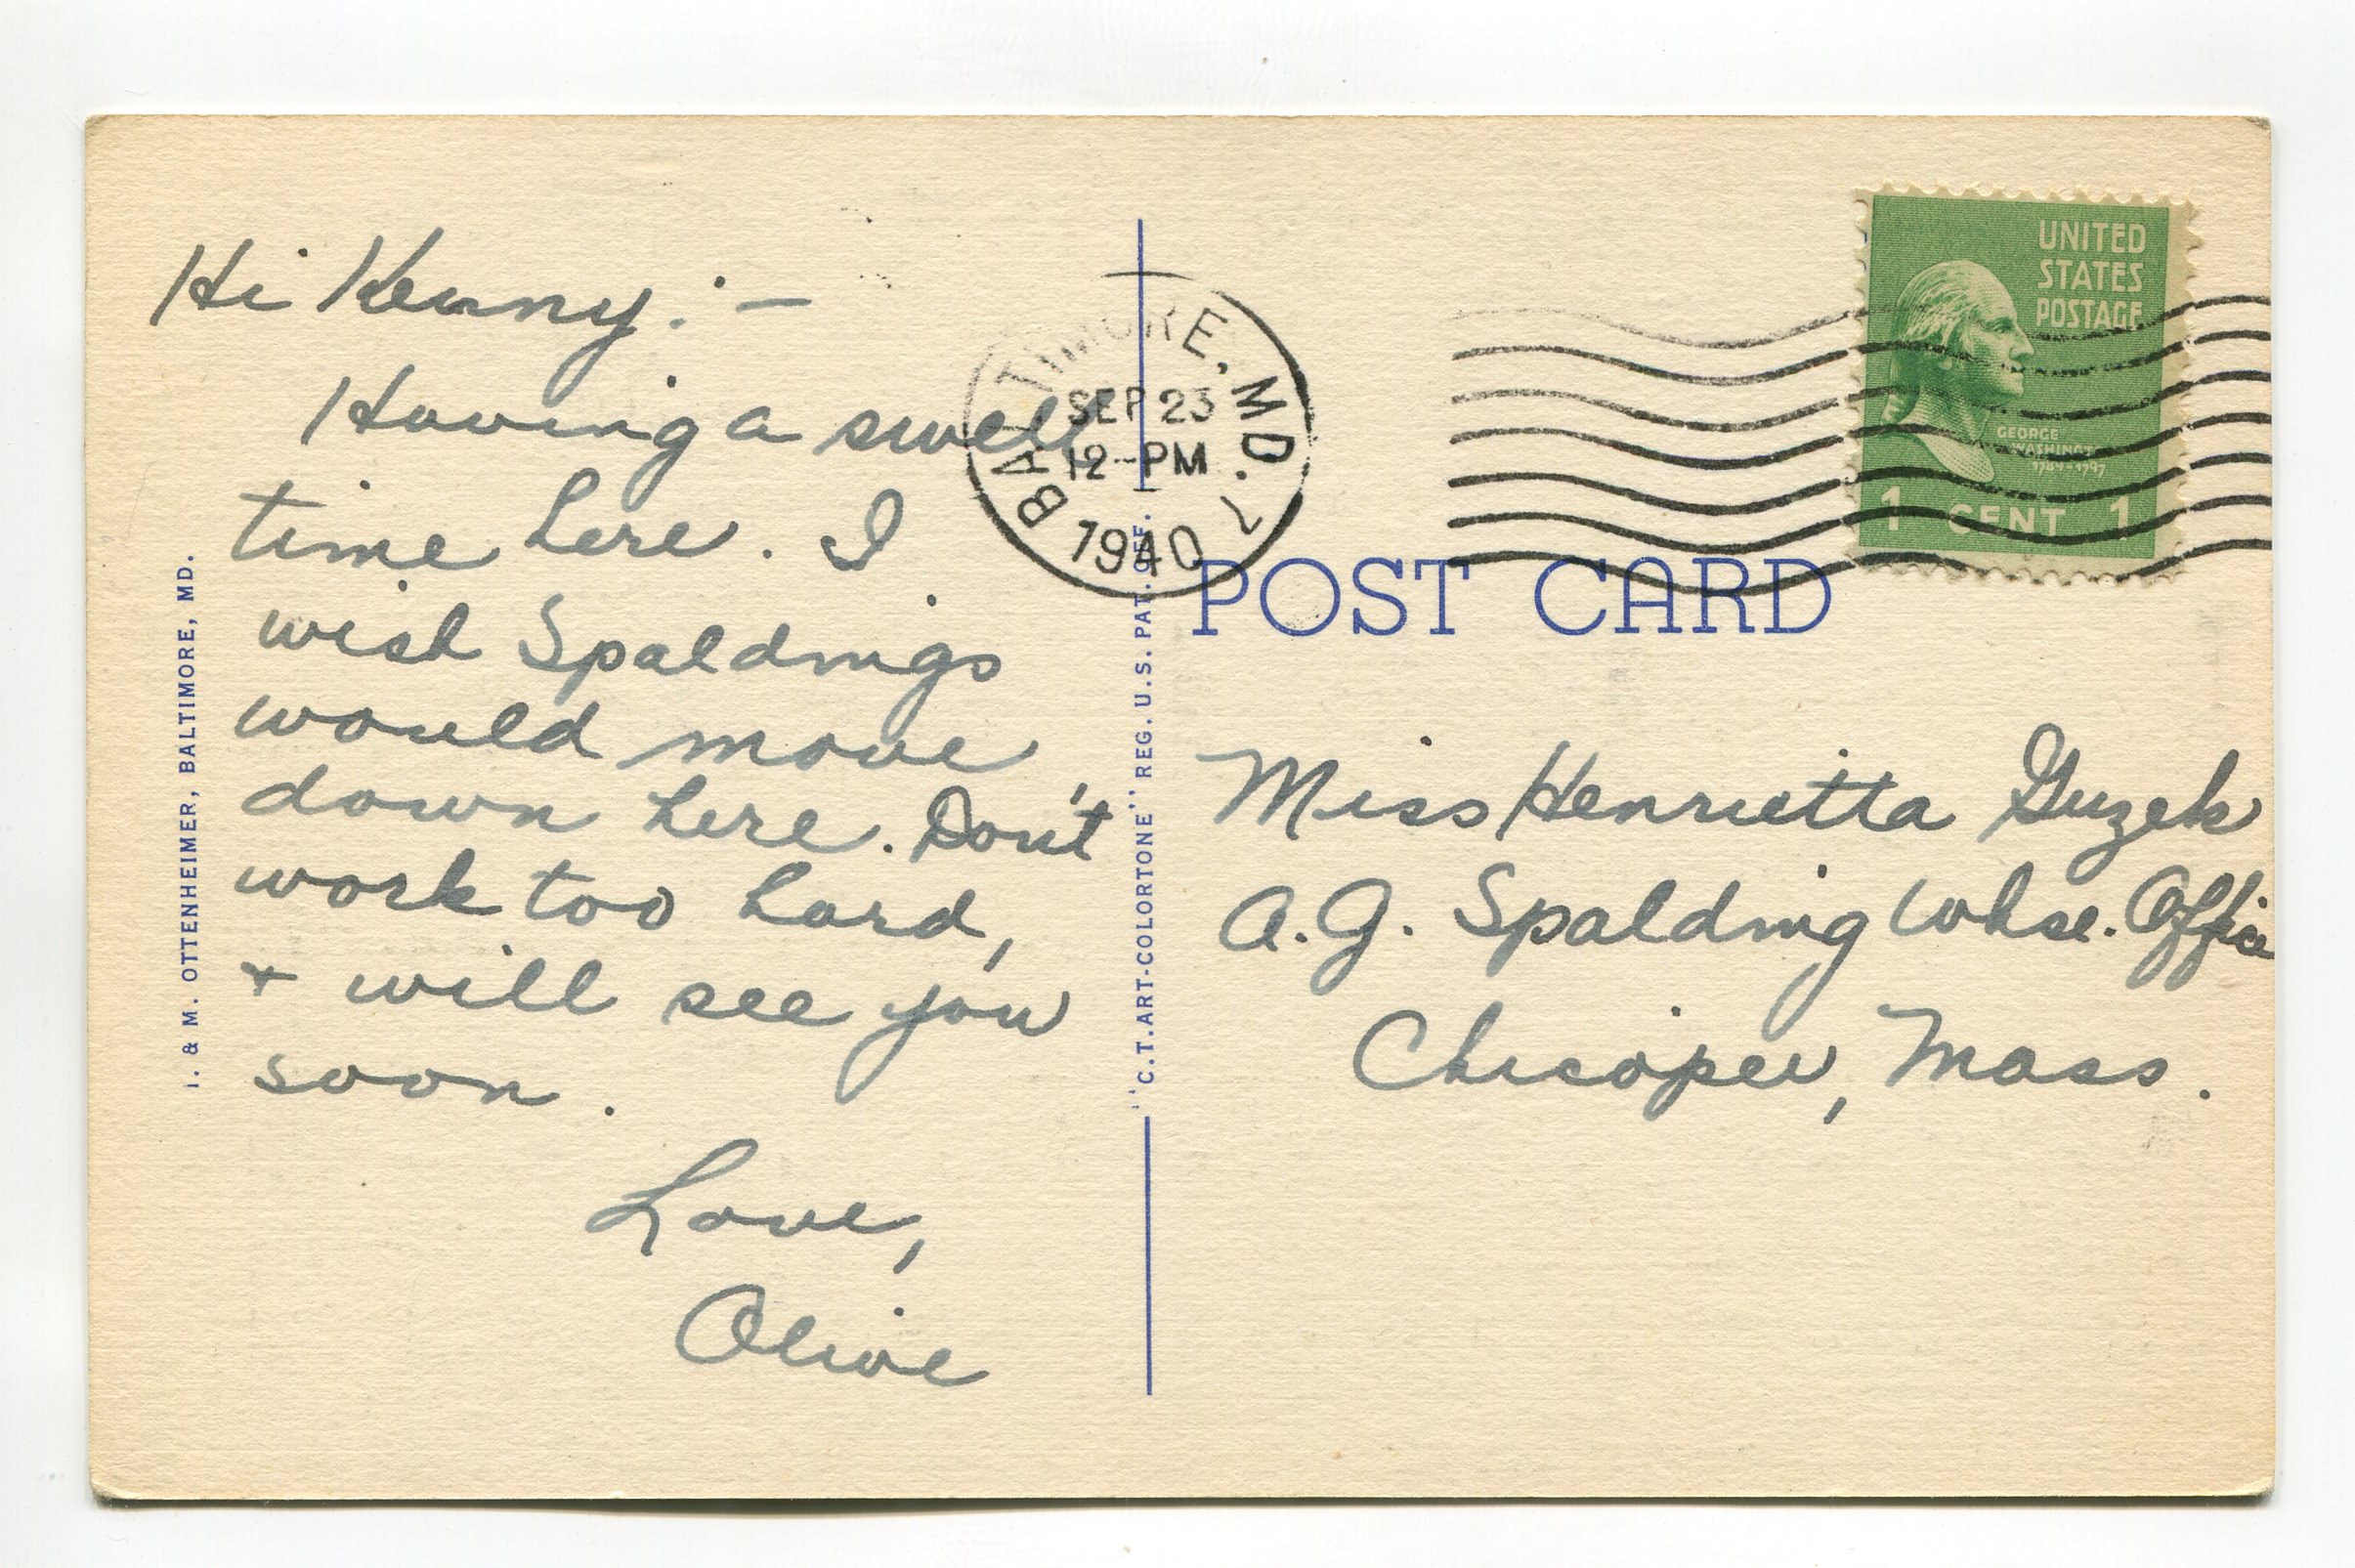 Hi Kenny:-
Having a swell
time here. I
wish Spaldings
would move
down here. Don't
work too hard,
+ will see you
soon.
Love,
Olive
I. & M. OTTENHEIMER, BALTIMORE, MD.
"C.T. ART-COLORTONE" REG. U.S. PAT. OFF.
BALTIMORE, MD. 7
SEP 23
12-PM
1940
UNITED
STATES
POSTAGE
GEORGE
WASHINGTON
1789-1797
1 CENT 1
POST CARD
Miss Henrietta Guzek
A.G. Spalding Whse. Office
Chicopee, Mass.